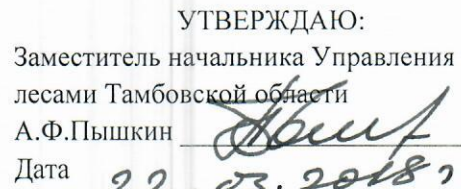 УТВЕРЖДАЮ:
Заместитель начальника Управления
лесами Тамбовской области
А.Ф.Пышкин
Дата 22 03. 2018г